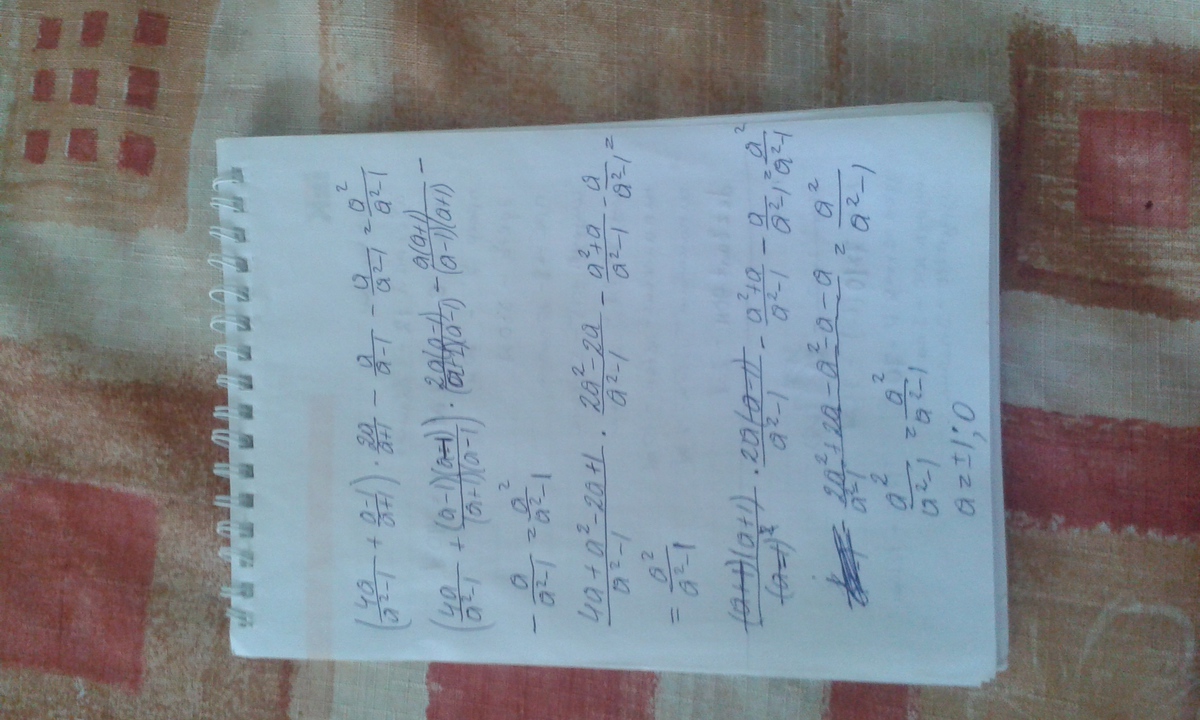 (4a/(a²-1) + (a-1)/(a+1)) · 2a/(a+1) - a/(a-1) - a/(a²-1) = a²/(a²-1)
(4a/(a²-1) + (a-1)(a-1)/((a+1)(a-1))) · 2a(a-1)/((a+1)(a-1)) - a(a+1)/((a-1)(a+1)) -
- a/(a²-1) = a²/(a²-1)
(4a+a²-2a+1)/(a²-1) · (2a²-2a)/(a²-1) - (a²+a)/(a²-1) - a/(a²-1) =
= a²/(a²-1)
(a+1)(a+1)/(a-1)² · 2a(a-1)/(a²-1) - (a²+a)/(a²-1) - a/(a²-1) = a²/(a²-1)
= (2a²+2a-a²-a-a)/(a²-1) = a²/(a²-1)
a²/(a²-1) = a²/(a²-1)
a=±1; 0